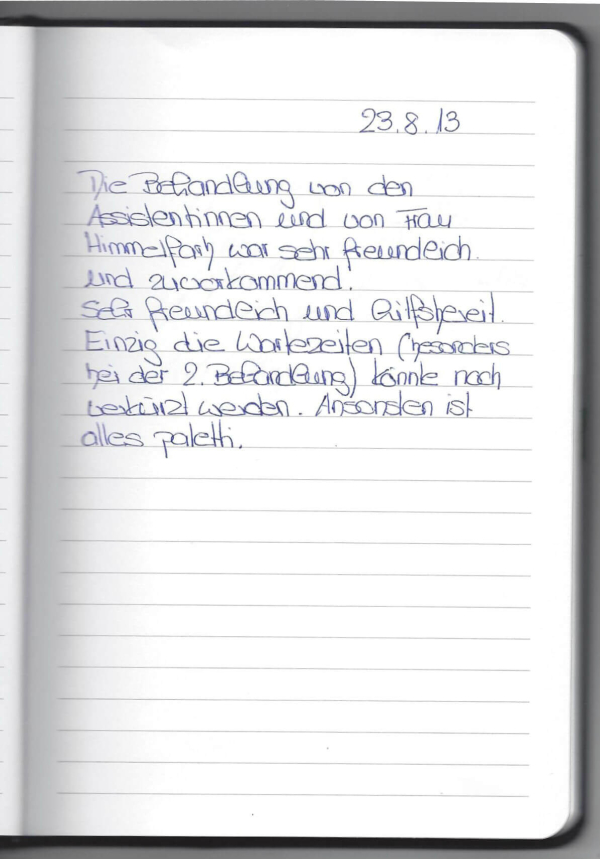 23.8.13
Die Behandlung von den
Assistentinnen und von Frau
Himmelfarb war sehr freundlich
und zuvorkommend.
Sehr freundlich und hilfsbereit.
Einzig die Wartezeiten (besonders
bei der 2. Behandlung) könnte noch
verkürzt werden. Ansonsten ist
alles paletti.